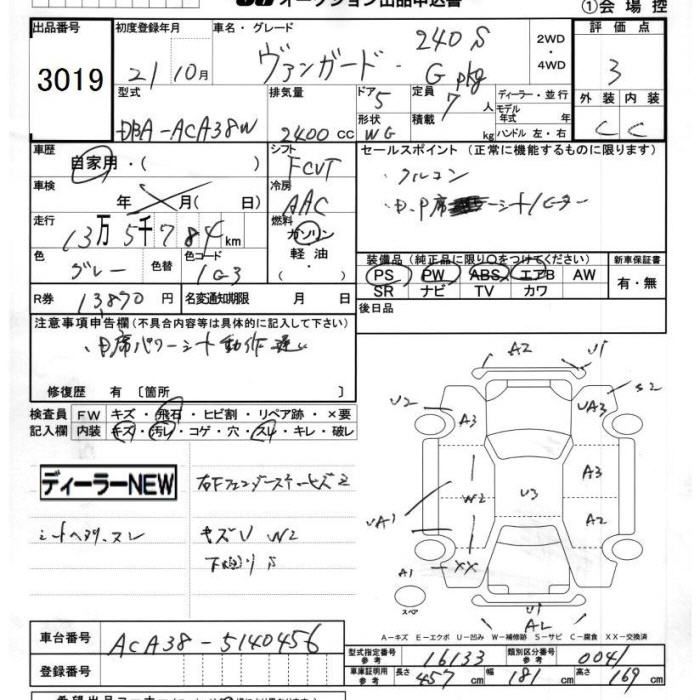 オークション出品申込書
①会場控
出品番号 3019
初度登録年月 21 10月
車名・グレード ヴァンガード・ 240S G pkg
2WD ・ 4WD
評価点 3
型式 DBA-ACA38W
排気量 2400 cc
ドア 5 形状 WG
定員 7 人 積載 kg
ディーラー・並行 モデル年式 年 ハンドル 左・右
外装 C 内装 C
車歴 自家用・( )
シフト FCVT
セールスポイント(正常に機能するものに限ります)
車検 年 月( 日)
冷房 AAC
走行 13万5千784km
燃料 ガソリン 軽油 ・
色 グレー 色替
色コード 1G3
装備品(純正品に限り○をつけてください) 新車保証書
PS PW ABS エアB AW 有・無
SR ナビ TV カワ
R券 13870円 名変通知期限 月 日
後日品
注意事項申告欄(不具合内容等は具体的に記入して下さい)
修復歴 有 〔箇所 〕
検査員 FW キズ・飛石・ヒビ割・リペア跡・×要
記入欄 内装 キズ・汚レ・コゲ・穴・スレ・キレ・破レ
ディーラーNEW
キズU W2
A2 U1
U2 A3 UA3 S2
A3
W2 U3 A2
UA1
XX
A1
スペア
U1
A2
A-キズ E-エクボ U-凹み W-補修跡 S-サビ C-腐食 XX-交換済
車台番号 ACA38-5140456
登録番号
型式指定番号 参考 16133 類別区分番号 参考 0041
車庫証明用 参考 長さ 457cm 幅 181cm 高さ 169cm